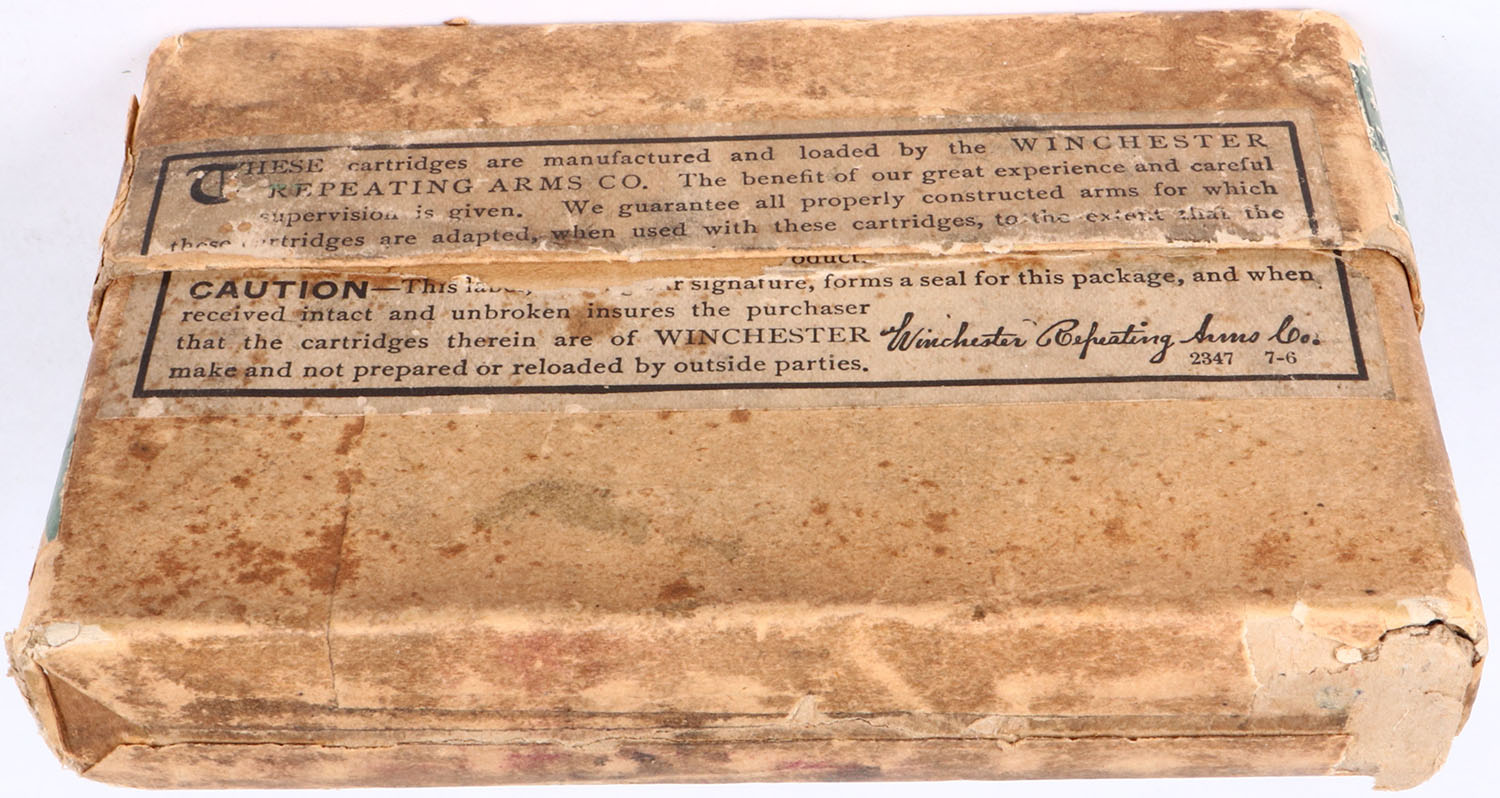 THESE cartridges are manufactured and loaded by the WINCHESTER
REPEATING ARMS CO. The benefit of our great experience and careful
supervision is given. We guarantee all properly constructed arms for which
these cartridges are adapted, when used with these cartridges, to the extent that the
CAUTION—This signature, forms a seal for this package, and when
received intact and unbroken insures the purchaser
that the cartridges therein are of WINCHESTER
make and not prepared or reloaded by outside parties.
Winchester Repeating Arms Co.
2347 7-6